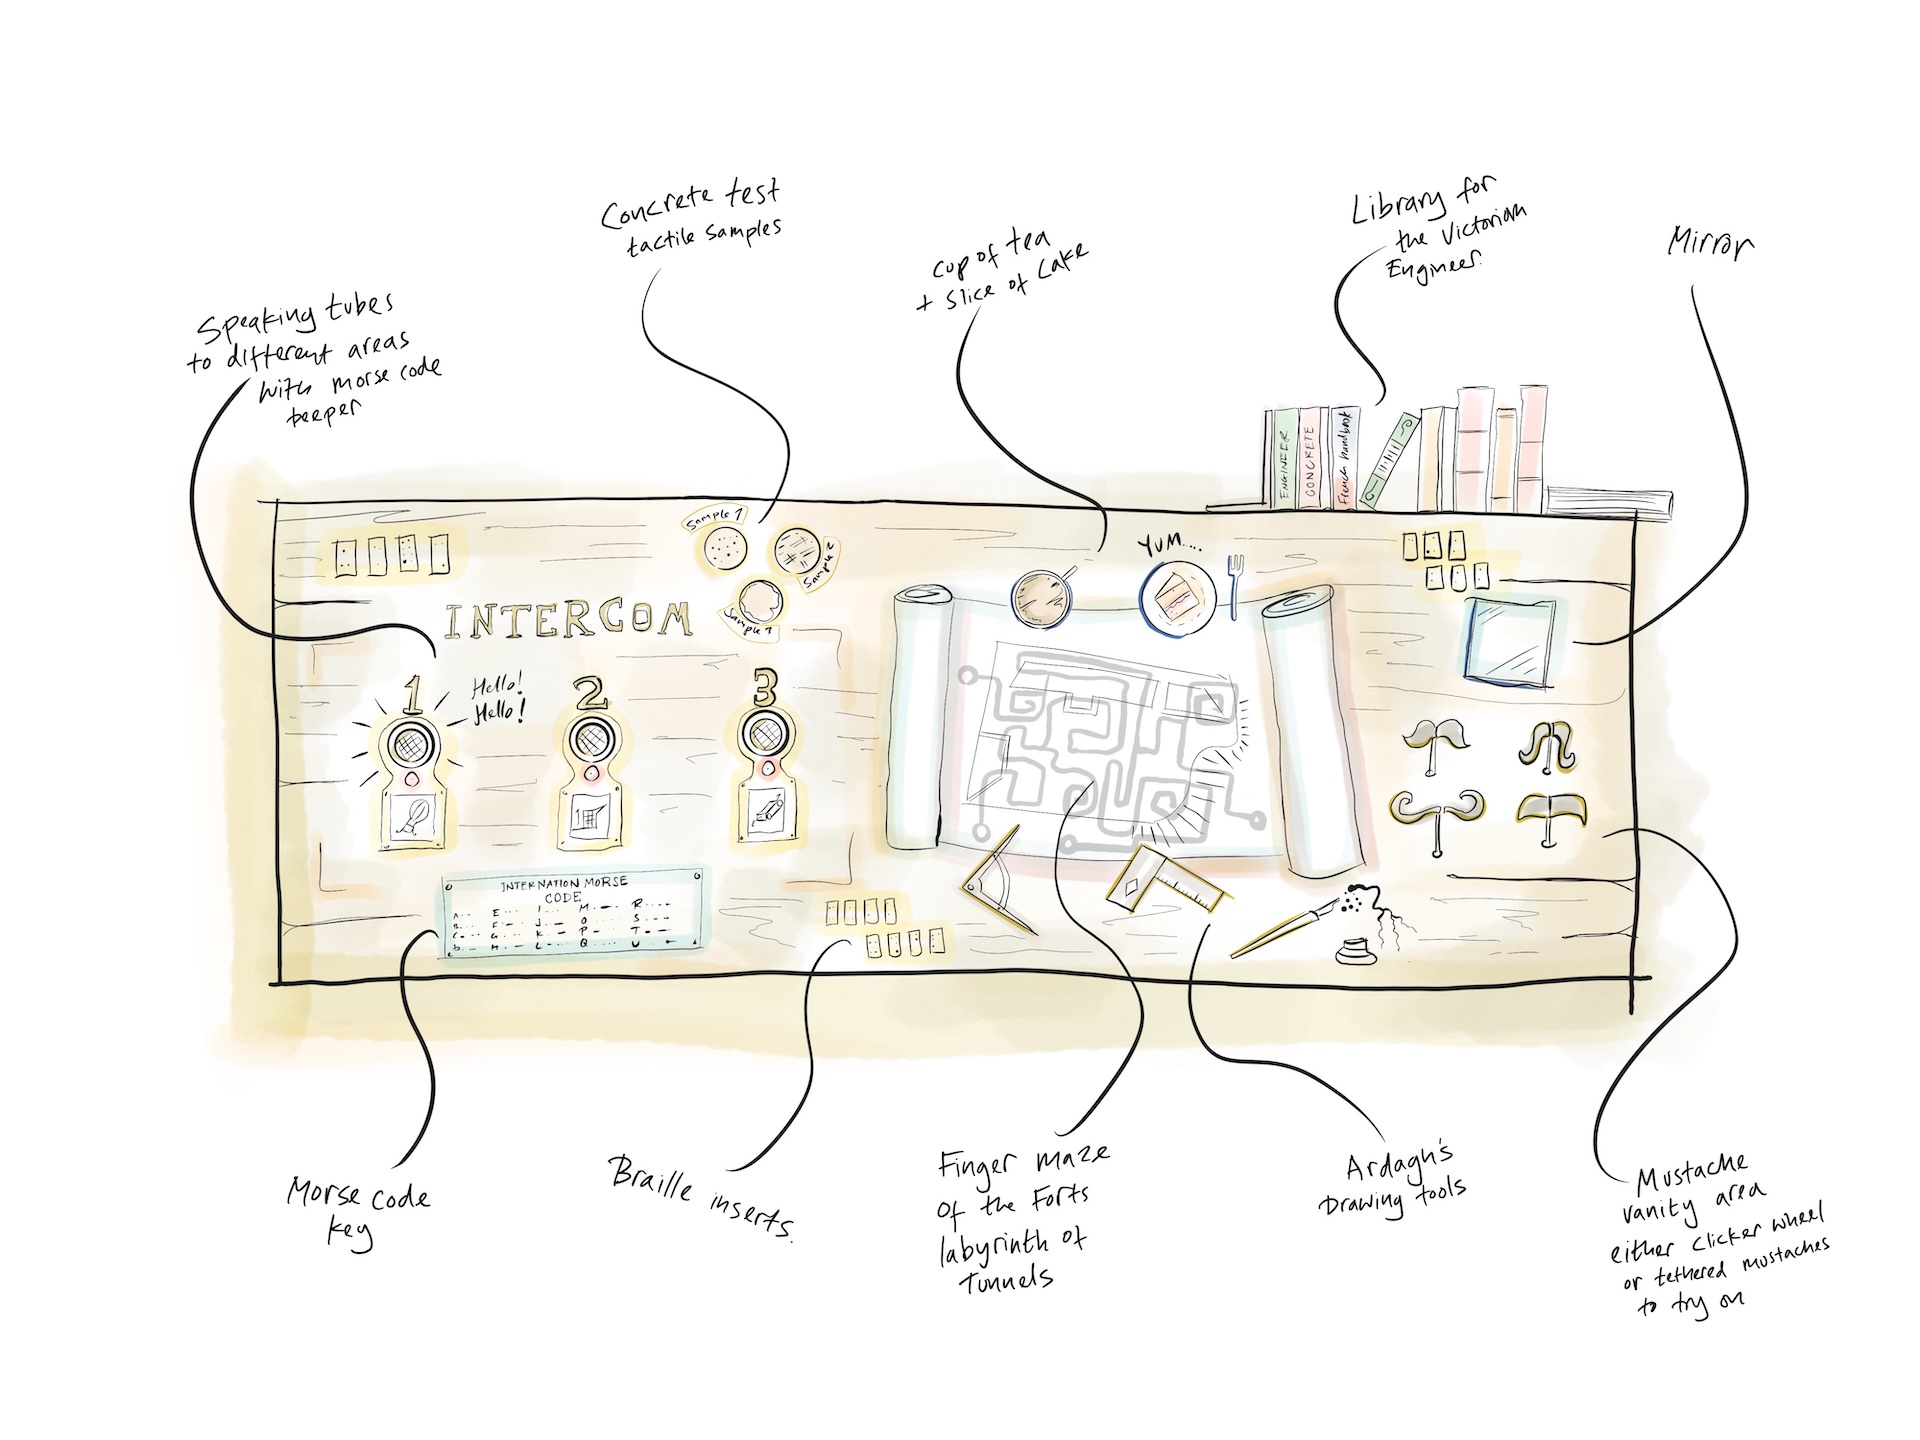 Concrete test
tactile samples
Cup of tea
+ slice of Cake
Library for
the Victorian
Engineer.
Mirror
Speaking tubes
to different areas
with morse code
beeper
ENGINEER
CONCRETE
French handbook
Sample 1
Sample 2
Sample 1
YUM....
INTERCOM
1
2
3
Hello!
Hello!
INTERNATION MORSE
CODE
A E I M R
B F J O S
C G K P T
D H L Q U
Morse code
key
Braille inserts.
Finger maze
of the Forts
labyrinth of
Tunnels
Ardagh's
Drawing tools
Mustache
vanity area
either clicker wheel
or tethered mustaches
to try on